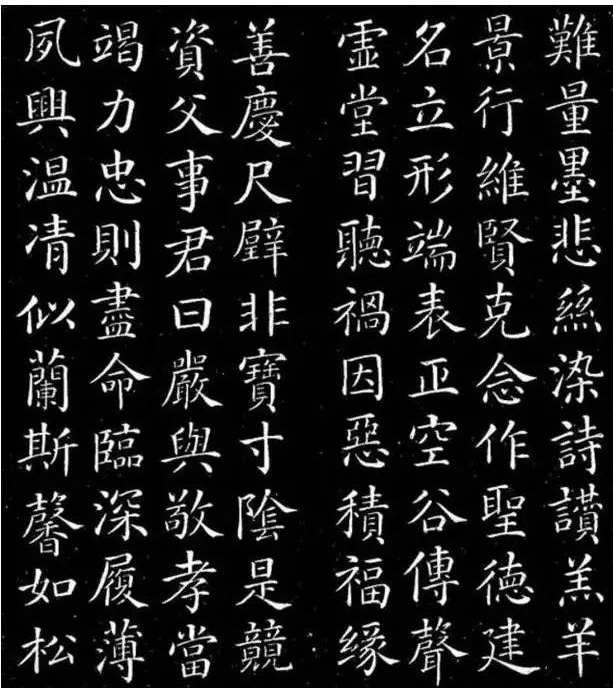 難量墨悲絲染詩讃羔羊
景行維賢克念作聖徳建
名立形端表正空谷傳聲
虚堂習聽禍因惡積福緣
善慶尺璧非寶寸陰是競
資父事君曰嚴與敬孝當
竭力忠則盡命臨深履薄
夙興温凊似蘭斯馨如松